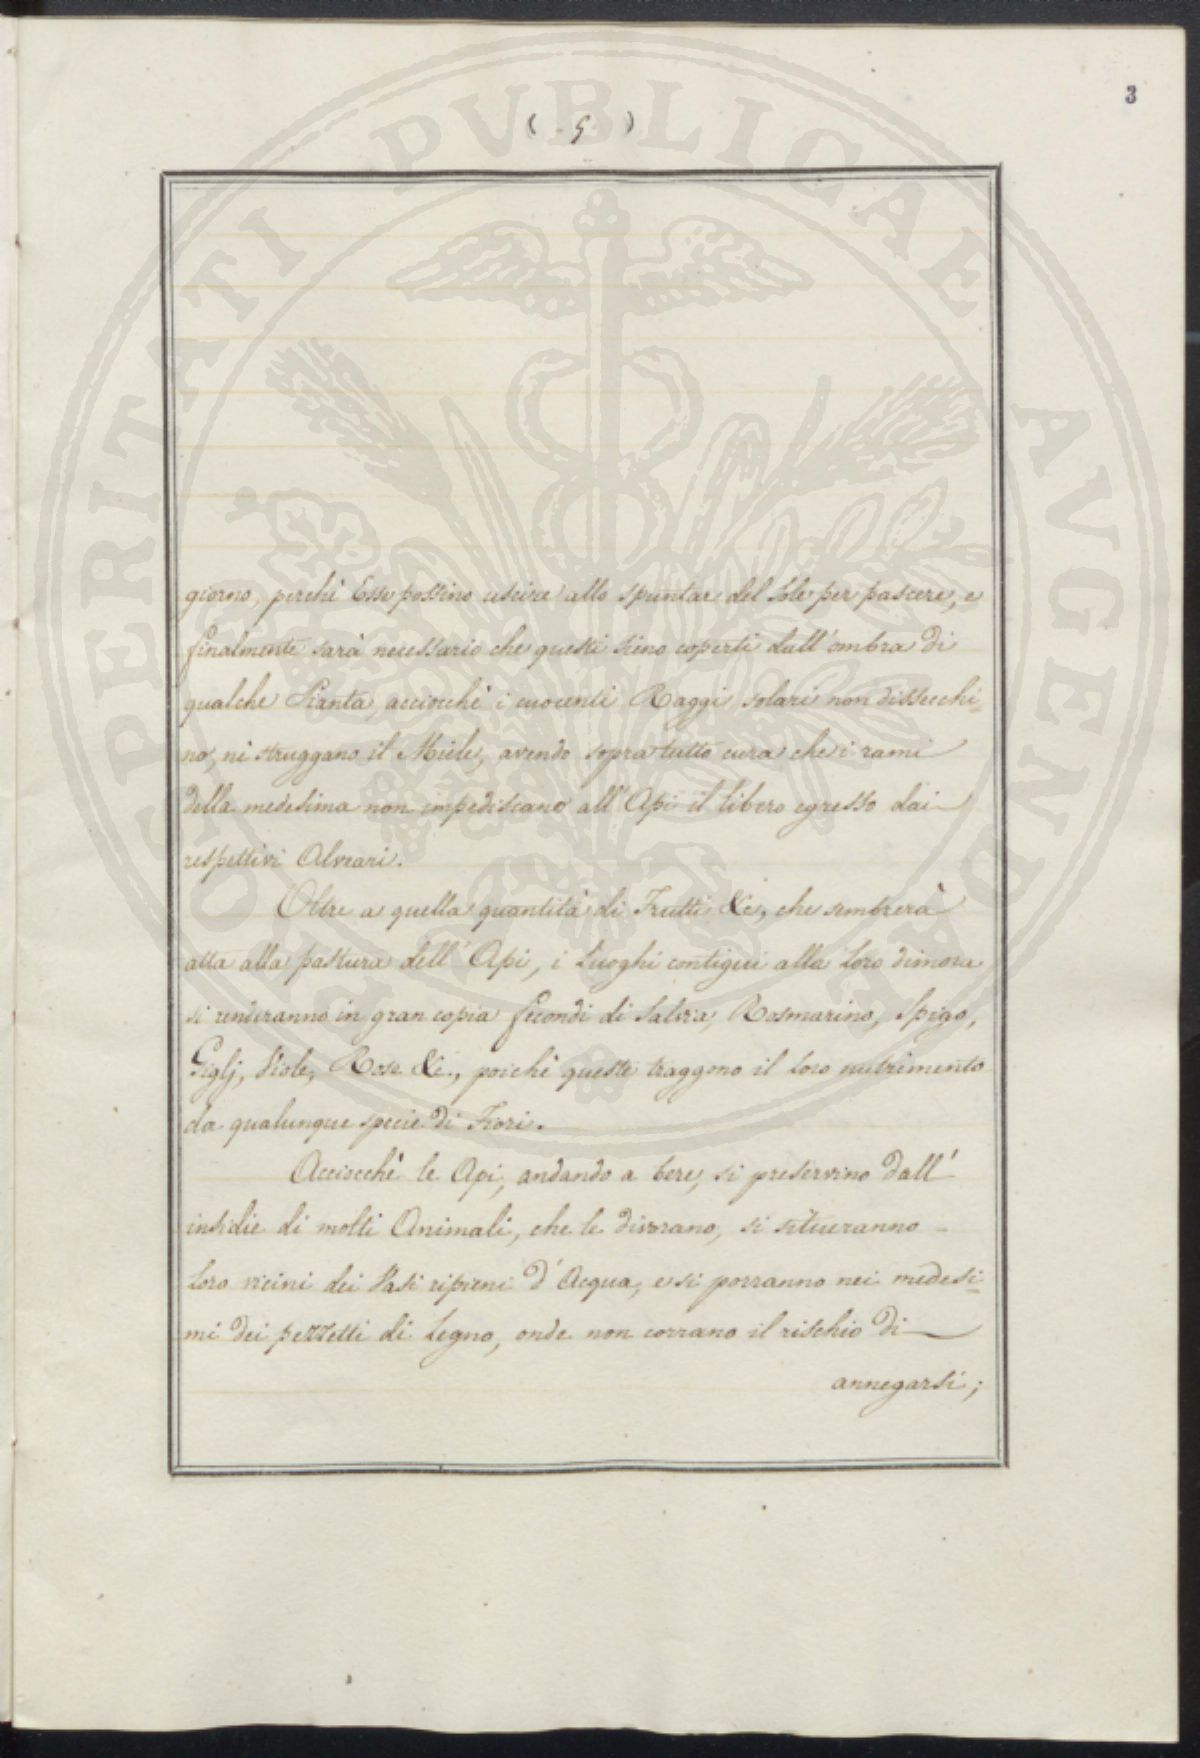 3
( 5 )
giorno, perchè Esse possino uscire allo spuntar del Sole per pascere, e
finalmente sarà necessario che questi sieno coperti dall'ombra di
qualche Pianta, acciocchè i cuocenti Raggi solari non dissecchi-
no, nè struggano il Miele, avendo sopra tutto cura che i rami
della medesima non impediscano all'Api il libero egresso dai
respettivi Alveari.
Oltre a quella quantità di Frutti &c, che sembrerà
atta alla pastura dell'Api, i Luoghi contigui alla loro dimora
si renderanno in gran copia fecondi di Salvia, Rosmarino, Spigo,
Giglj, Viole, Rose &c., poichè queste traggono il loro nutrimento
da qualunque specie di Fiori.
Acciocchè le Api, andando a bere, si preservino dall'
insidie di molti Animali, che le divorano, si situeranno
loro vicini dei Vasi ripieni d'Acqua, e si porranno nei medesi-
mi dei pezzetti di Legno, onde non corrano il rischio di
annegarsi;